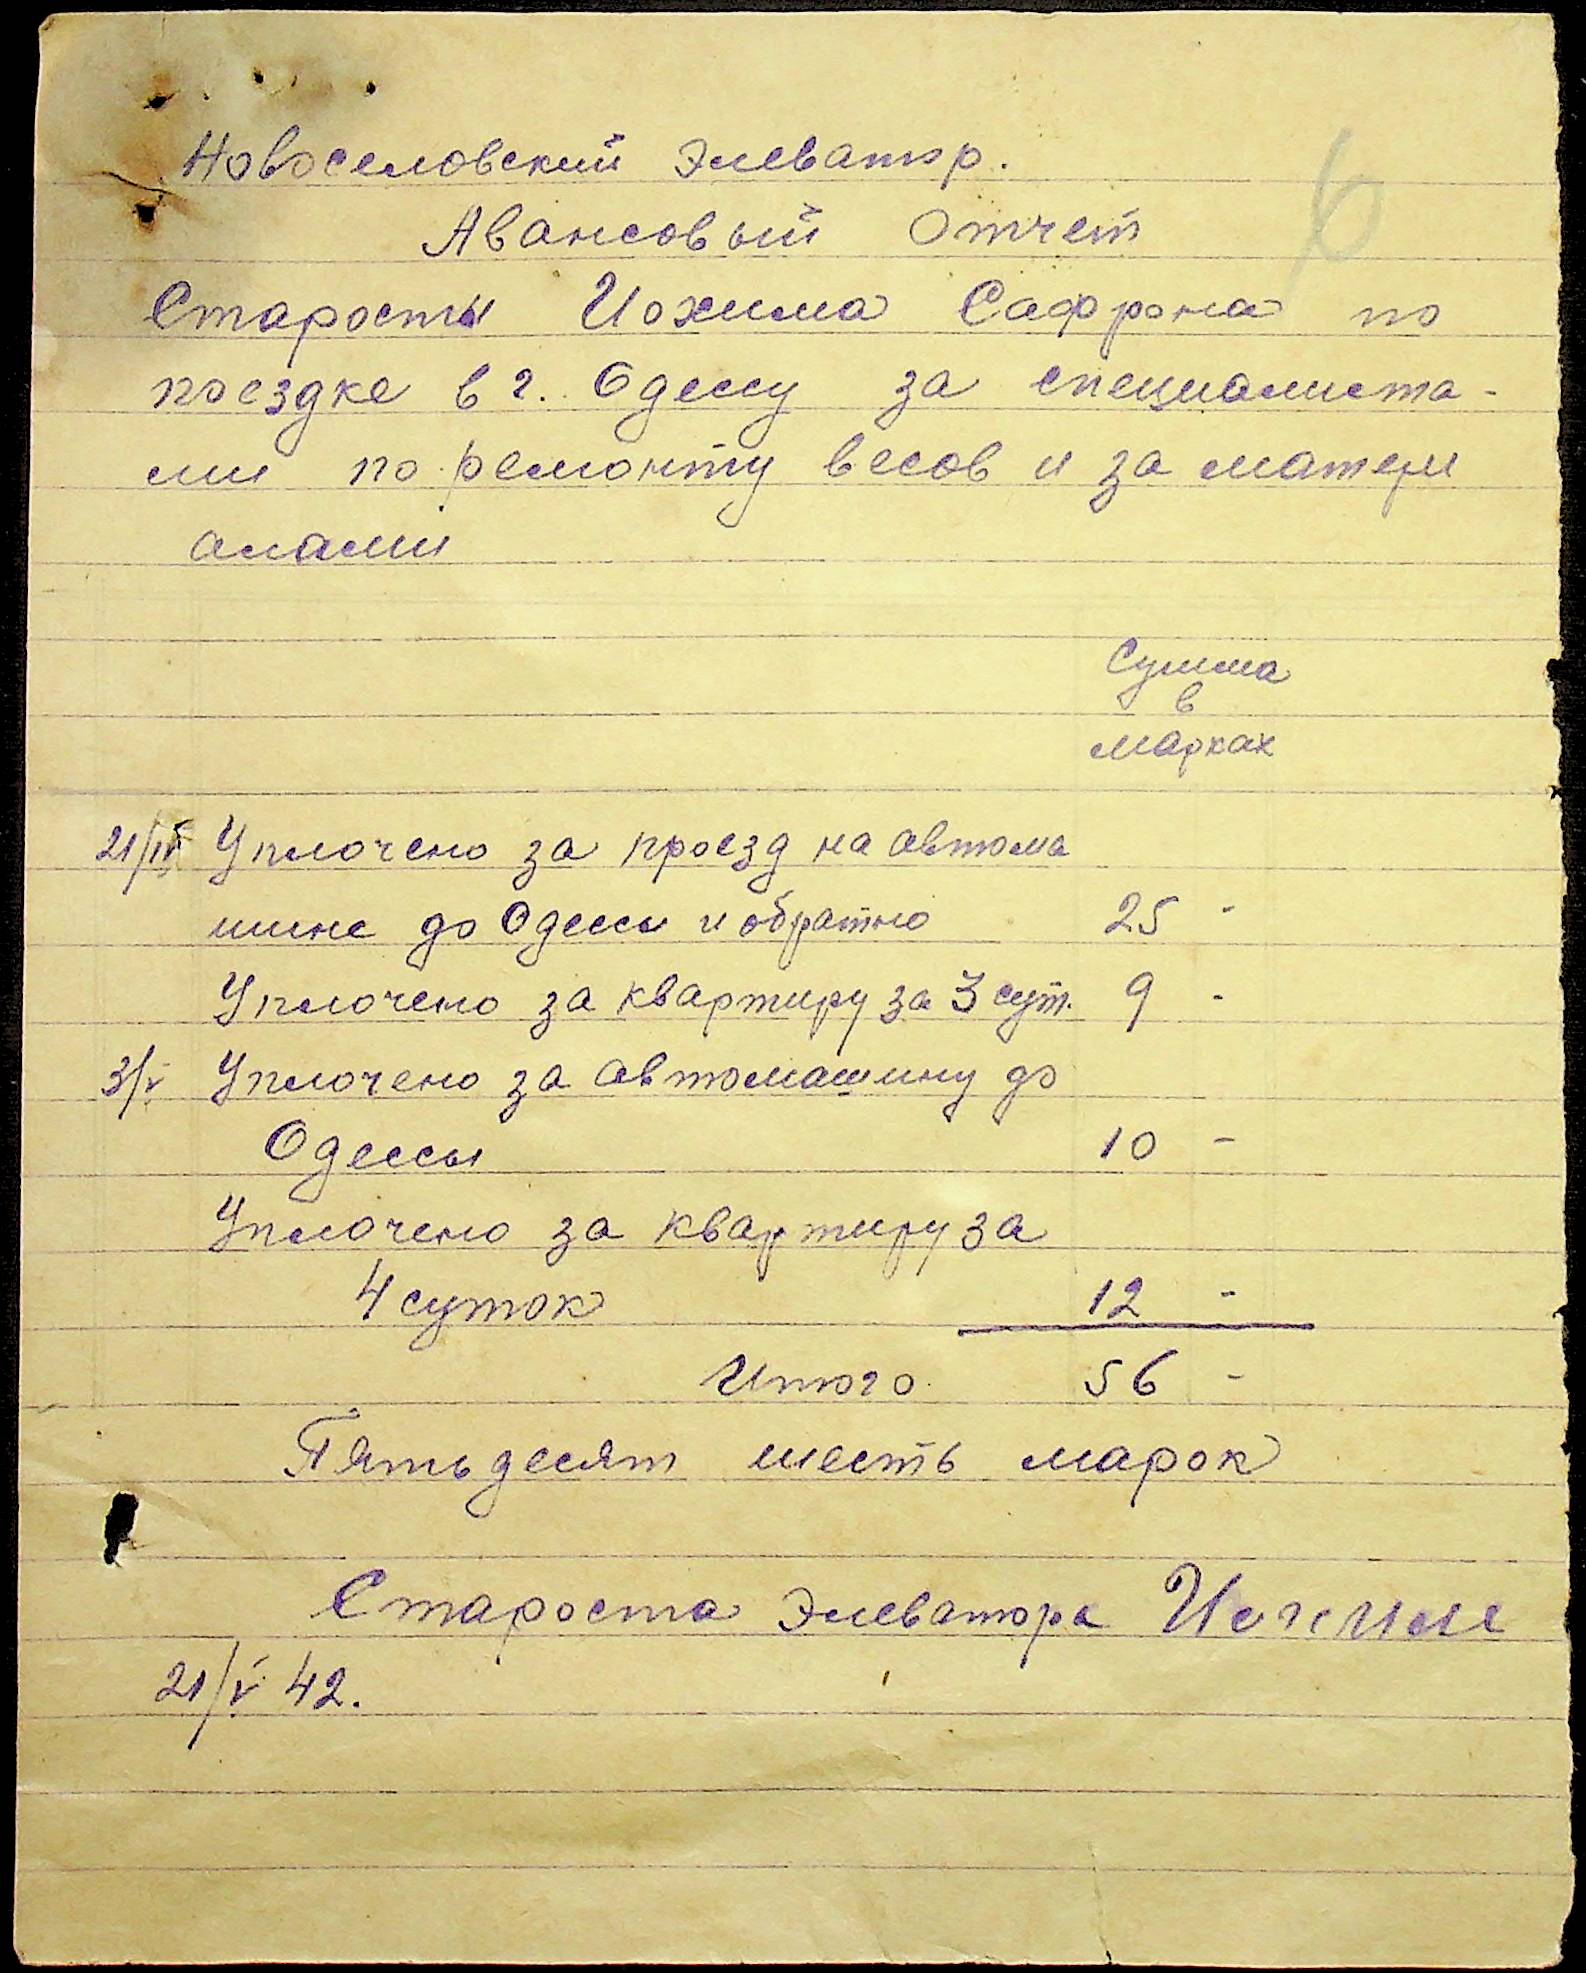 6
Новоселовский Элеватор.
Авансовый Отчет
Старосты Иохима Сафрона по
поездке в г. Одессу за специалиста-
ми по ремонту весов и за матери
алами
Сумма
в
марках
21/IV Уплочено за проезд на автома
шине до Одессы и обратно 25 -
Уплочено за квартиру за 3 сут. 9 -
3/V Уплочено за автомашину до
Одессы 10 -
Уплочено за квартиру за
4 суток 12 -
Итого 56 -
Пятьдесят шесть марок
Староста Элеватора Иохим
21/V 42.